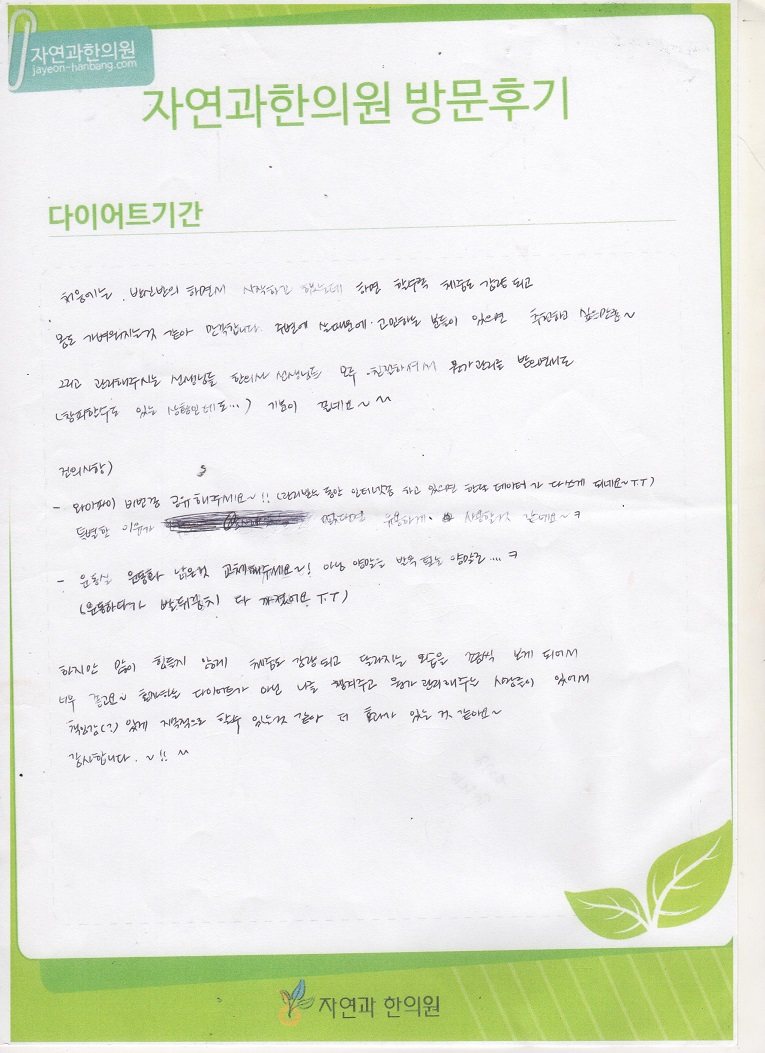 자연과한의원
jayeon-hanbang.com
자연과한의원 방문후기
다이어트기간
처음에는 반신반의 하면서 시작하긴 했는데 하면 할수록 체중도 감량 되고
몸도 가벼워지는것 같아 만족합니다. 주변에 살때문에 고민하는 분들이 있으면 추천하고 싶은만큼~
그리고 관리해주시는 선생님들 한의사 선생님도 모두 친절하셔서 뭔가 관리를 받으면서도
(창피할수도 있는 상황인데도...) 기분이 좋네요~^^
건의사항)
- 와이파이 비번좀 공유해주세요~!! (관리받는 동안 인터넷좀 하고 있으면 한달 데이터가 다쓰게 되네요~ㅜㅜ)
특별한 이유가 없다면 유용하게 사용할것 같네요~ㅋ
- 운동실 운동화 낡은것 교체해주세요~! 아님 양말을 반목 말고 양말로....ㅋ
(운동하다가 발뒤꿈치 다 까졌어요 ㅜ.ㅜ)
하지만 많이 힘들지 않게 체중도 감량 되고 달라지는 모습을 조금씩 보게 되어서
너무 좋고요~ 혼자하는 다이어트가 아닌 나를 챙겨주고 뭔가 관리해주는 사람들이 있어서
책임감(?) 있게 지속적으로 할수 있는것 같아 더 효과가 있는 것 같아요~
감사합니다.~!! ^^
자연과 한의원